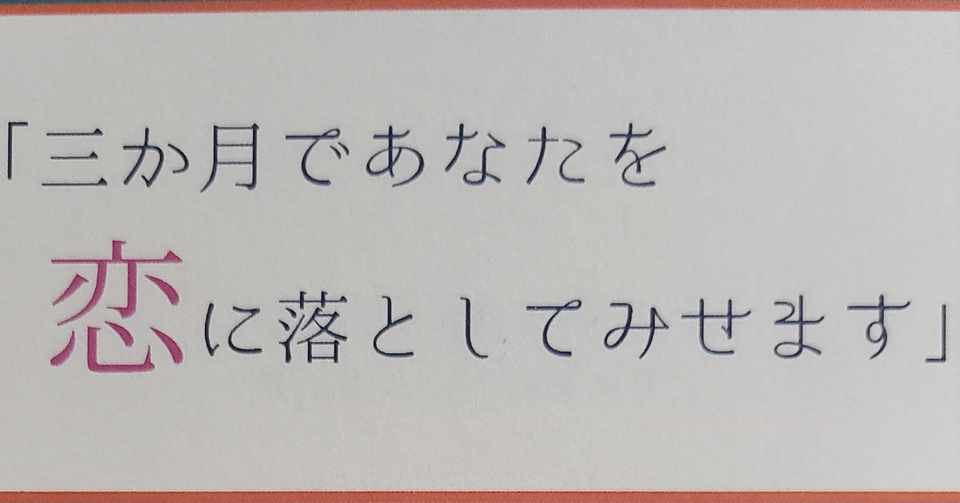 「三か月であなたを
恋に落としてみせます」